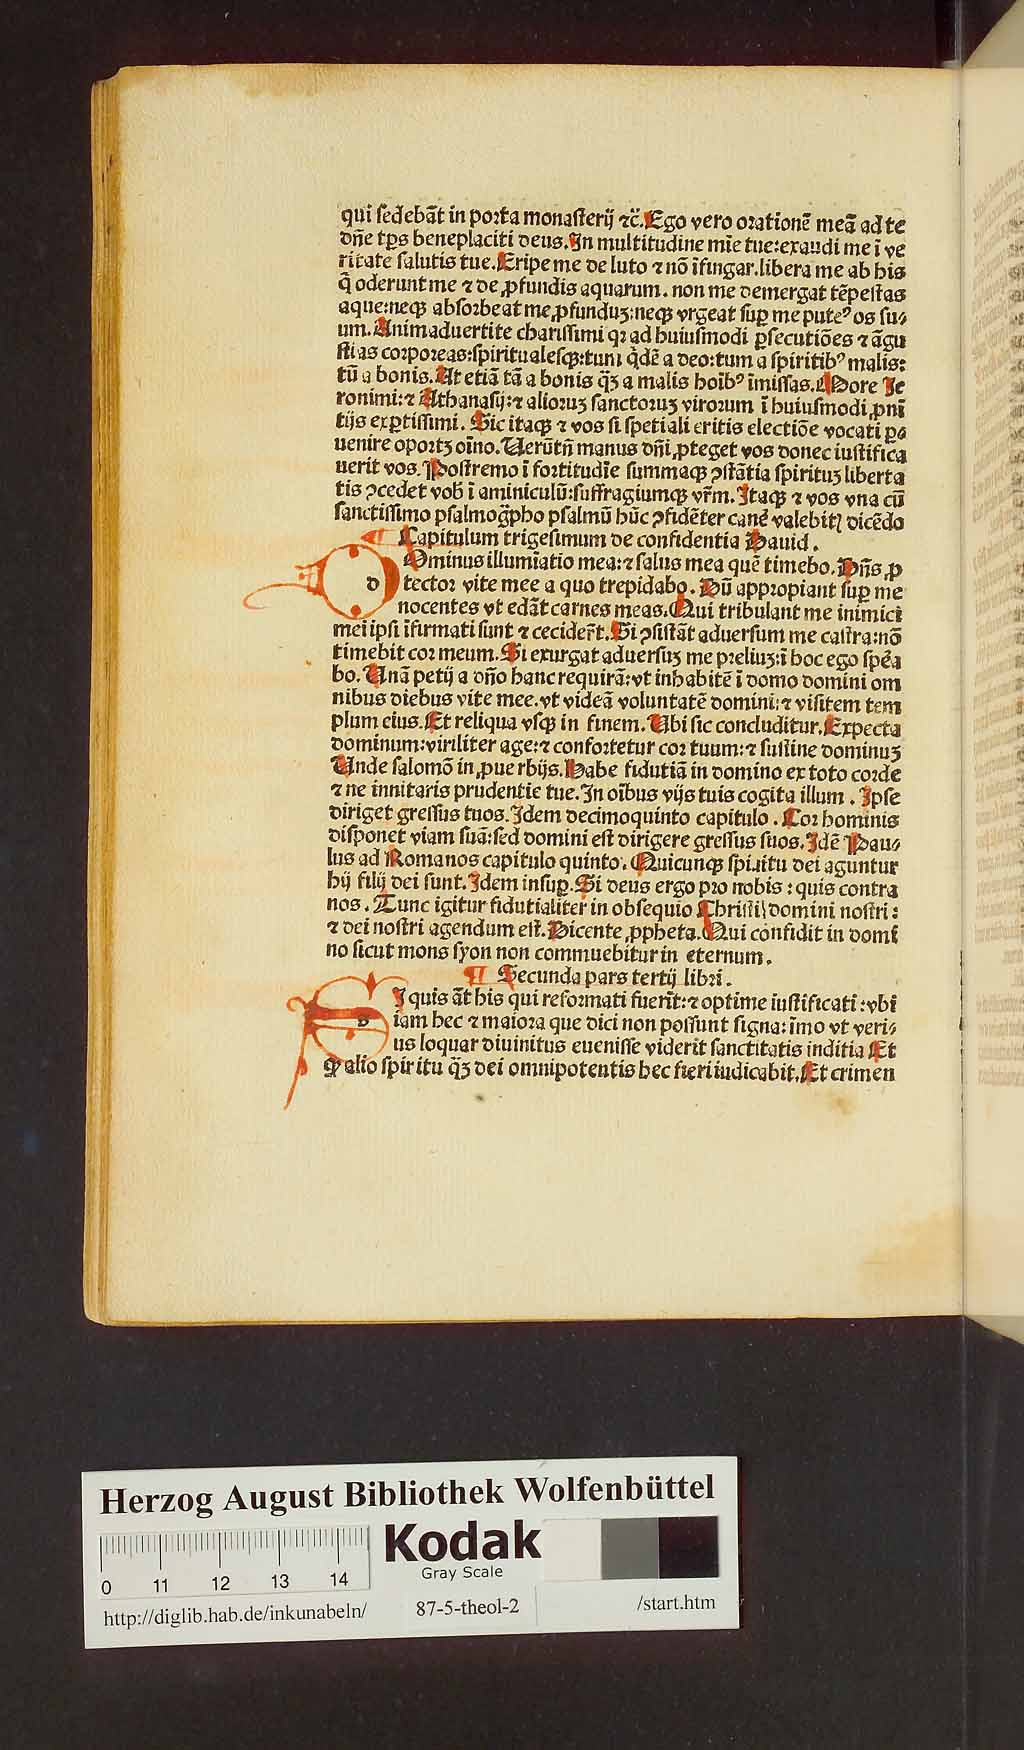 qui ſedebāt in porta monaſterij ⁊c̄. Ego vero orationē meā ad te
dñe tp̄s beneplaciti deus. In multitudine mīe tue: exaudi me ī ve
ritate ſalutis tue. Eripe me de luto ⁊ nō īfingar. libera me ab his
q̄ oderunt me ⁊ de ꝓfundis aquarum. non me demergat tēpeſtas
aque: neqꝫ abſorbeat me ꝓfunduꝫ: neqꝫ vrgeat ſuꝑ me puteꝰ os ſu⸗
um. Animaduertite chariſſimi qꝛ ad huiuſmodi ꝑſecutiōes ⁊ āgu
ſtias corporeas: ſpiritualeſqꝫ: tum q̇dē a deo: tum a ſpiritibꝰ malis:
tū a bonis. At etiā tā a bonis qꝫ̄ a malis hoībꝰ īmiſſas. More Je
ronimi: ⁊ Athanaſij: ⁊ alioruꝫ ſanctoruꝫ virorum ī huiuſmodi ꝓnī
tijs exꝑtiſſimi. Sic itaqꝫ ⁊ vos ſi ſpetiali eritis electiōe vocati ꝑ⸗
uenire oportꝫ oīno. Uerūtn̄ manus dn̄i ꝓteget vos donec iuſtifica
uerit vos. Poſtremo ī fortitudīe ſummaqꝫ ꝯſtātia ſpirituꝫ liberta
tis ꝯcedet vob̄ ī aminiculū: ſuffragiumqꝫ vr̄m. Itaqꝫ ⁊ vos vna cū
ſanctiſſimo pſalmog̈pho pſalmū hūc ꝯfidēter cane᷑ valebitꝭ dicēdo
Capitulum trigeſimum de confidentia Dauid.
d Ominus illumīatio mea: ⁊ ſalus mea quē timebo. Dn̄s ꝓ
tector vite mee a quo trepidabo. Dū appropiant ſuꝑ me
nocentes vt edāt carnes meas. Qui tribulant me inimici
mei ipſi īfirmati ſunt ⁊ cecider̄t. Si ꝯſiſtāt aduerſum me caſtra: nō
timebit cor meum. Si exurgat aduerſuꝫ me preliuꝫ: ī hoc ego ſpe᷑a
bo. Unā petij a dn̄o hanc requirā: vt inhabitē ī domo domini om
nibus diebus vite mee. vt videā voluntatē domini: ⁊ viſitem tem
plum eius. Et reliqua vſqꝫ in finem. Ubi ſic concluditur. Expecta
dominum: viriliter age: ⁊ confortetur cor tuum: ⁊ ſuſtine dominuꝫ
Unde ſalomō in ꝓuerbijs. Habe fidutiā in domino ex toto corde
⁊ ne innitaris prudentie tue. In oībus vijs tuis cogita illum. Ipſe
diriget greſſus tuos. Idem decimoquinto capitulo. Cor hominis
diſponet viam ſuā: ſed domini eſt dirigere greſſus ſuos. Idē Pau⸗
lus ad Romanos capitulo quinto. Quicunqꝫ ſpiritu dei aguntur
hij filij dei ſunt. Idem inſuꝑ. Si deus ergo pro nobis: quis contra
nos. Tunc igitur fidutialiter in obſequio Chriſti domini noſtri:
⁊ dei noſtri agendum eſt. Dicente ꝓpheta. Qui confidit in domi
no ſicut mons ſyon non commuebitur in eternum.
¶ Secunda pars tertij libri.
s I quis āt his qui reformati fuerīt: ⁊ optime iuſtificati: vbi
iam hec ⁊ maiora que dici non poſſunt ſigna: īmo vt veri⸗
us loquar diuinitus eueniſſe viderit ſanctitatis inditia Et
ꝙ alio ſpiritu qꝫ̄ dei omnipotentis hec fieri iudicabit. Et crimen
Herzog August Bibliothek Wolfenbüttel
Kodak
Gray Scale
0 11 12 13 14
http://diglib.hab.de/inkunabeln/ 87-5-theol-2 /start.htm